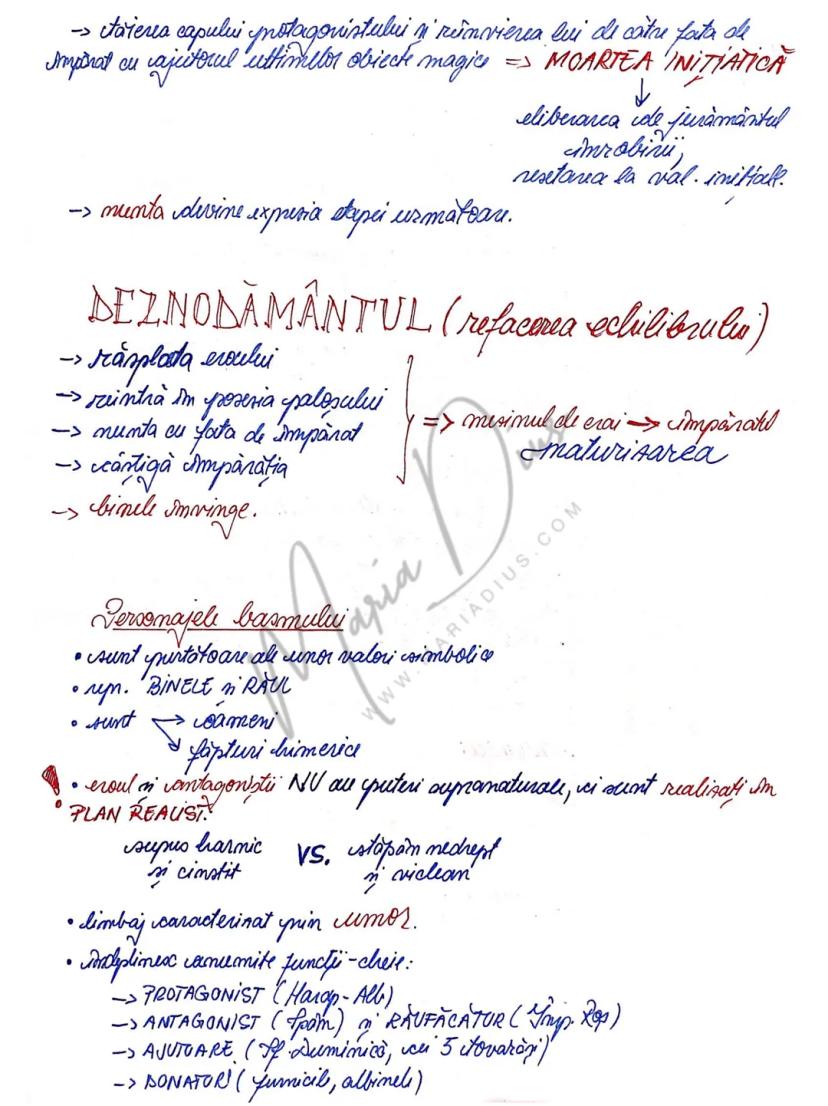 -> tăierea capului protagonistului și reînvierea lui de către fata de
împărat cu ajutorul ultimelor obiecte magice => MOARTEA INIȚIATICĂ
eliberarea de jurământul
înrobirii,
resetarea la val. inițiale.
-> nunta devine expresia etapei următoare.
DEZNODĂMÂNTUL (refacerea echilibrului)
-> răsplata eroului
-> reintră în posesia paloșului
-> nunta cu fata de împărat
-> câștigă împărăția
=> mezinul de crai -> împăratul
maturizarea
-> binele învinge.
Personajele basmului
• sunt purtătoare ale unor valori simbolice
• repr. BINELE și RĂUL
• sunt -> oameni
-> făpturi himerice
! • eroul și antagoniștii NU au puteri supranaturale, ci sunt realizați în
PLAN REALIST.
supus harnic
și cinstit
VS.
stăpân nedrept
și viclean
• limbaj caracterizat prin umor.
• îndeplinesc anumite funcții-cheie:
-> PROTAGONIST (Harap-Alb)
-> ANTAGONIST (Spân) și RĂUFĂCĂTOR (Împ. Roș)
-> AJUTOARE (Sf. Duminică, cei 5 tovarăși)
-> DONATORI (furnicile, albinele)
Maria Dius
WWW.MARIADIUS.COM